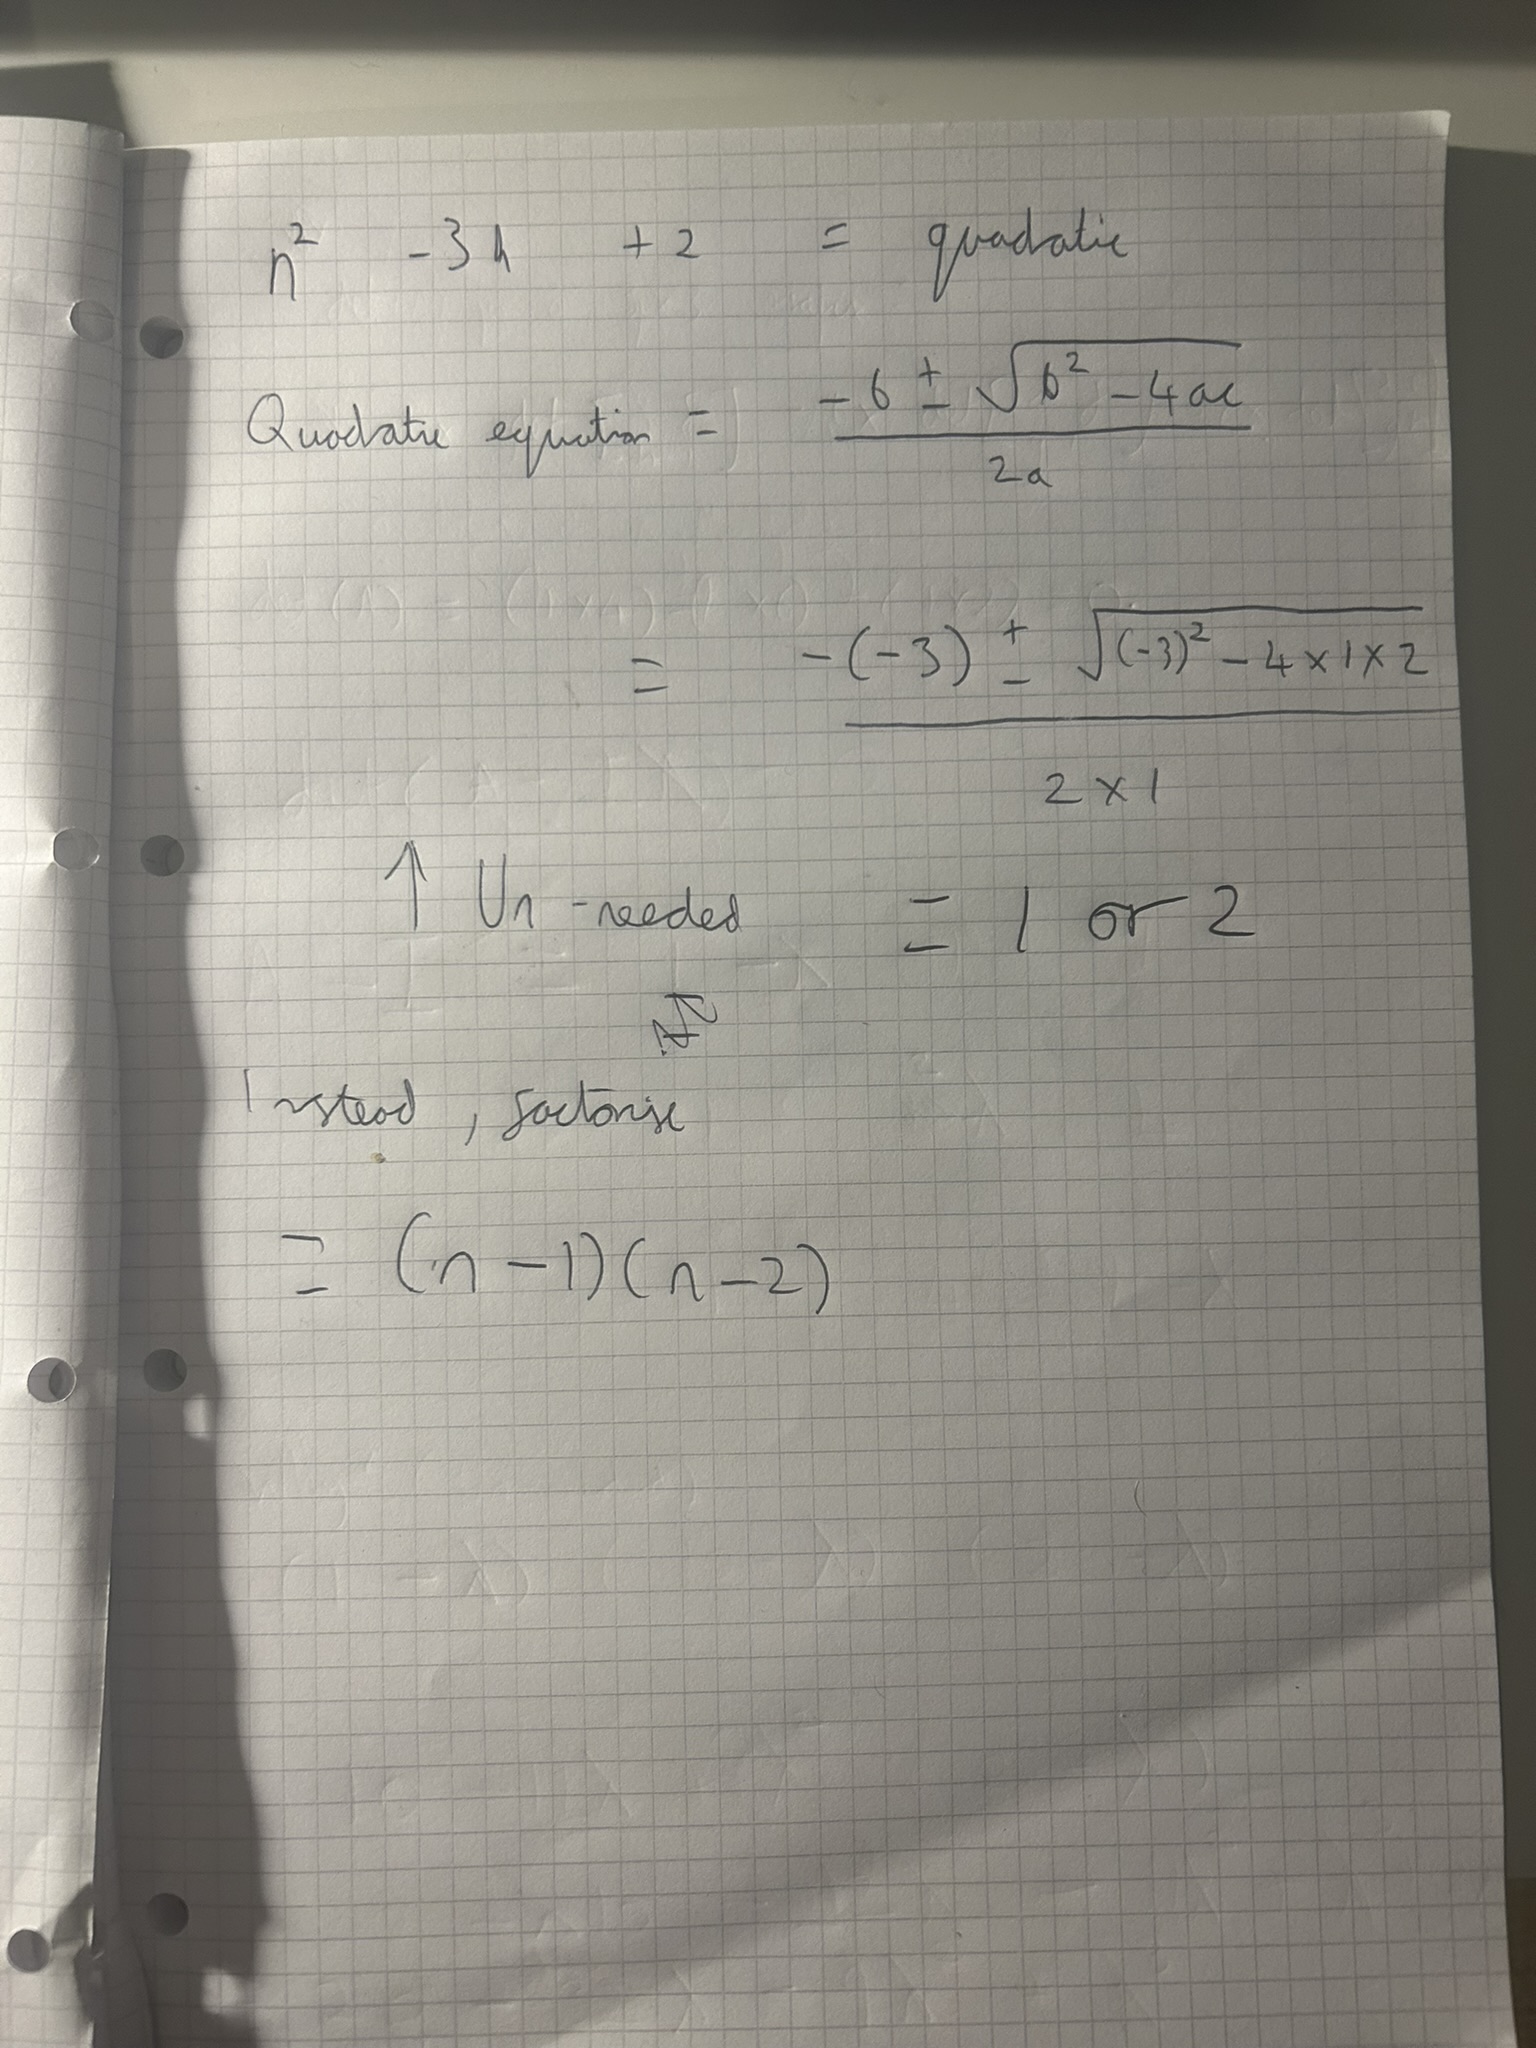 n² -3n +2 = quadratic
Quadratic equation = -b ± √(b² -4ac) / 2a
= -(-3) ± √((-3)² - 4×1×2) / 2×1
↑ Un-needed = 1 or 2
Instead, factorise
= (n-1)(n-2)